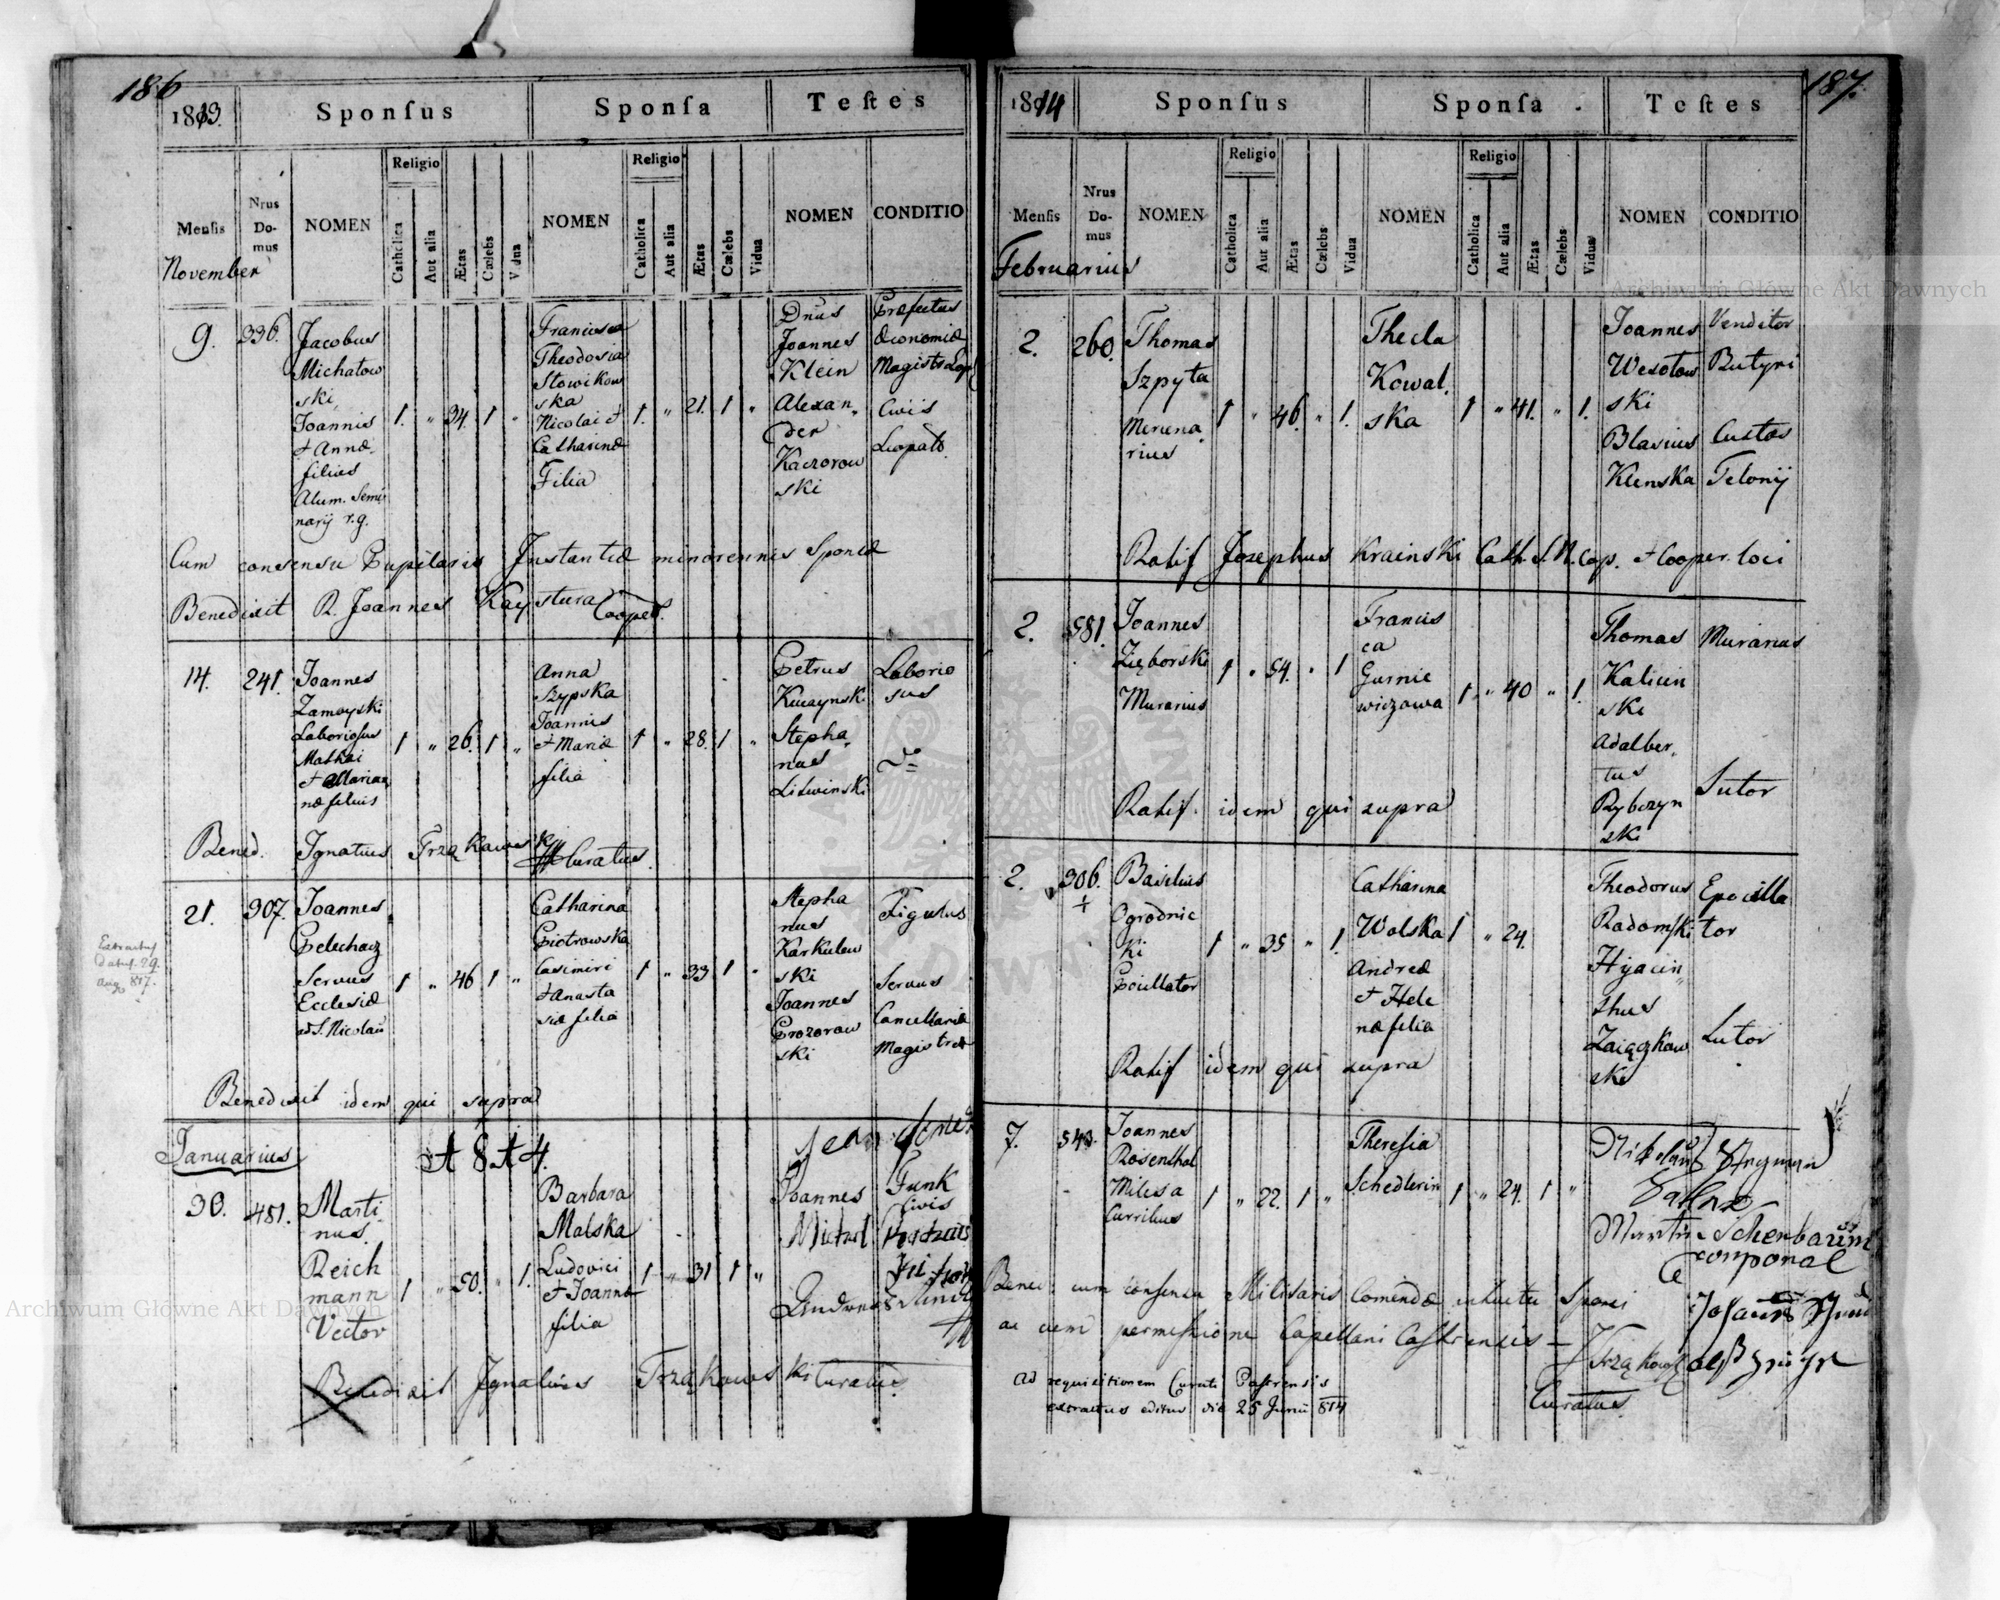 186
1813.
Sponſus
Sponſa
Teſtes
Menſis
Nrus Domus
NOMEN
Religio
Catholica
Aut alia
Ætas
Cælebs
Vidua
NOMEN
Religio
Catholica
Aut alia
Ætas
Cælebs
Vidua
NOMEN
CONDITIO
November
9.
336.
Jacobus
Michałow
ski
Joannis
et Annæ
filius
Alum. Semi
narij r.g.
1. " 34. 1 "
Francisca
Theodosia
Słowikow
ska
Nicolai et
Catharinæ
Filia
1. " 21. 1 "
Dnus
Joannes
Klein
Alexan
der
Kaczorow
ski
Præfectus
Œconomiæ
Civis
Leopold.
Cum consensu Pupilaris Instantiæ minorennis Sponsæ
Benedixit R. Joannes Kaystura Cooper.
14.
241.
Joannes
Zamoyski
Laboriosus
Mathæi
et Marian
næ filius
1 " 26. 1 "
Anna
Szypska
Joannis
et Mariæ
filia
1 " 28. 1 "
Petrus
Stepha
nus
Litwinski
Laborio
sus
do
Bened. Ignatius Trząkowski Curatus.
21.
307.
Joannes
Pelechacz
Servus
Ecclesiæ
ad S. Nicolaum
1 " 46 1 "
Catharina
Piotrowska
Casimiri
et Anasta
siæ filia
1 " 33 1 "
Stepha
nus
Karkulew
ski
Joannes
Prozorow
ski
Figulus
Servus
Cancellariæ
Magistrat
Benedixit idem qui supra
Januarius
1814.
30.
451.
Marti
nus
Reich
mann
Vector
1 " 50. " 1.
Barbara
Malska
Ludovici
et Joannæ
filia
1 " 31 1 "
Joannes
Funk
Civis
Michael
Benedixit Ignatius Trząkowski Curatus
187.
1814
Sponſus
Sponſa
Teſtes
Menſis
Nrus Domus
NOMEN
Religio
Catholica
Aut alia
Ætas
Cælebs
Vidua
NOMEN
Religio
Catholica
Aut alia
Ætas
Cælebs
Vidua
NOMEN
CONDITIO
Februarius
2.
260.
Thomas
Szpyta
Mercena
rius
1 " 46. " 1.
Thecla
Kowal
ska
1 " 41. " 1.
Joannes
Wesołow
ski
Blasius
Klenska
Venditor
Butyri
Custos
Telonij
Ratif Josephus Krainski Cath. S. N. Cap. et Cooper. loci
2.
581.
Joannes
Zięborski
Murarius
1 " 54. " 1
Francis
ca
Gurnie
wiczowa
1 " 40 " 1.
Thomas
Kalicin
ski
Adalber
tus
Rybczyn
ski
Murarius
Sutor
Ratif. idem qui supra
2.
306.
Basilius
Ogrodnic
ki
Pocillator
1 " 35 " 1.
Catharina
Wolska
Andreæ
et Hele
næ filia
1 " 24.
Theodorus
Radomski
Hyacin
thus
Zaiączkow
ski
Epocilla
tor
Sutor
Ratif idem qui supra
7.
543.
Joannes
Rosenthal
Miles a
Curribus
1 " 22. 1 "
Theresia
Schedlerin
1 " 24. 1 "
Bened. cum consensu Militaris Comendæ intuitu Sponsi
ac cum permissione Capellani Castrensis
Trząkowski
Curatus.
ad requisitionem Curati Castrensis
extractus editus die 25 Junii 814
Archiwum Główne Akt Dawnych
Archiwum Główne Akt Dawnych